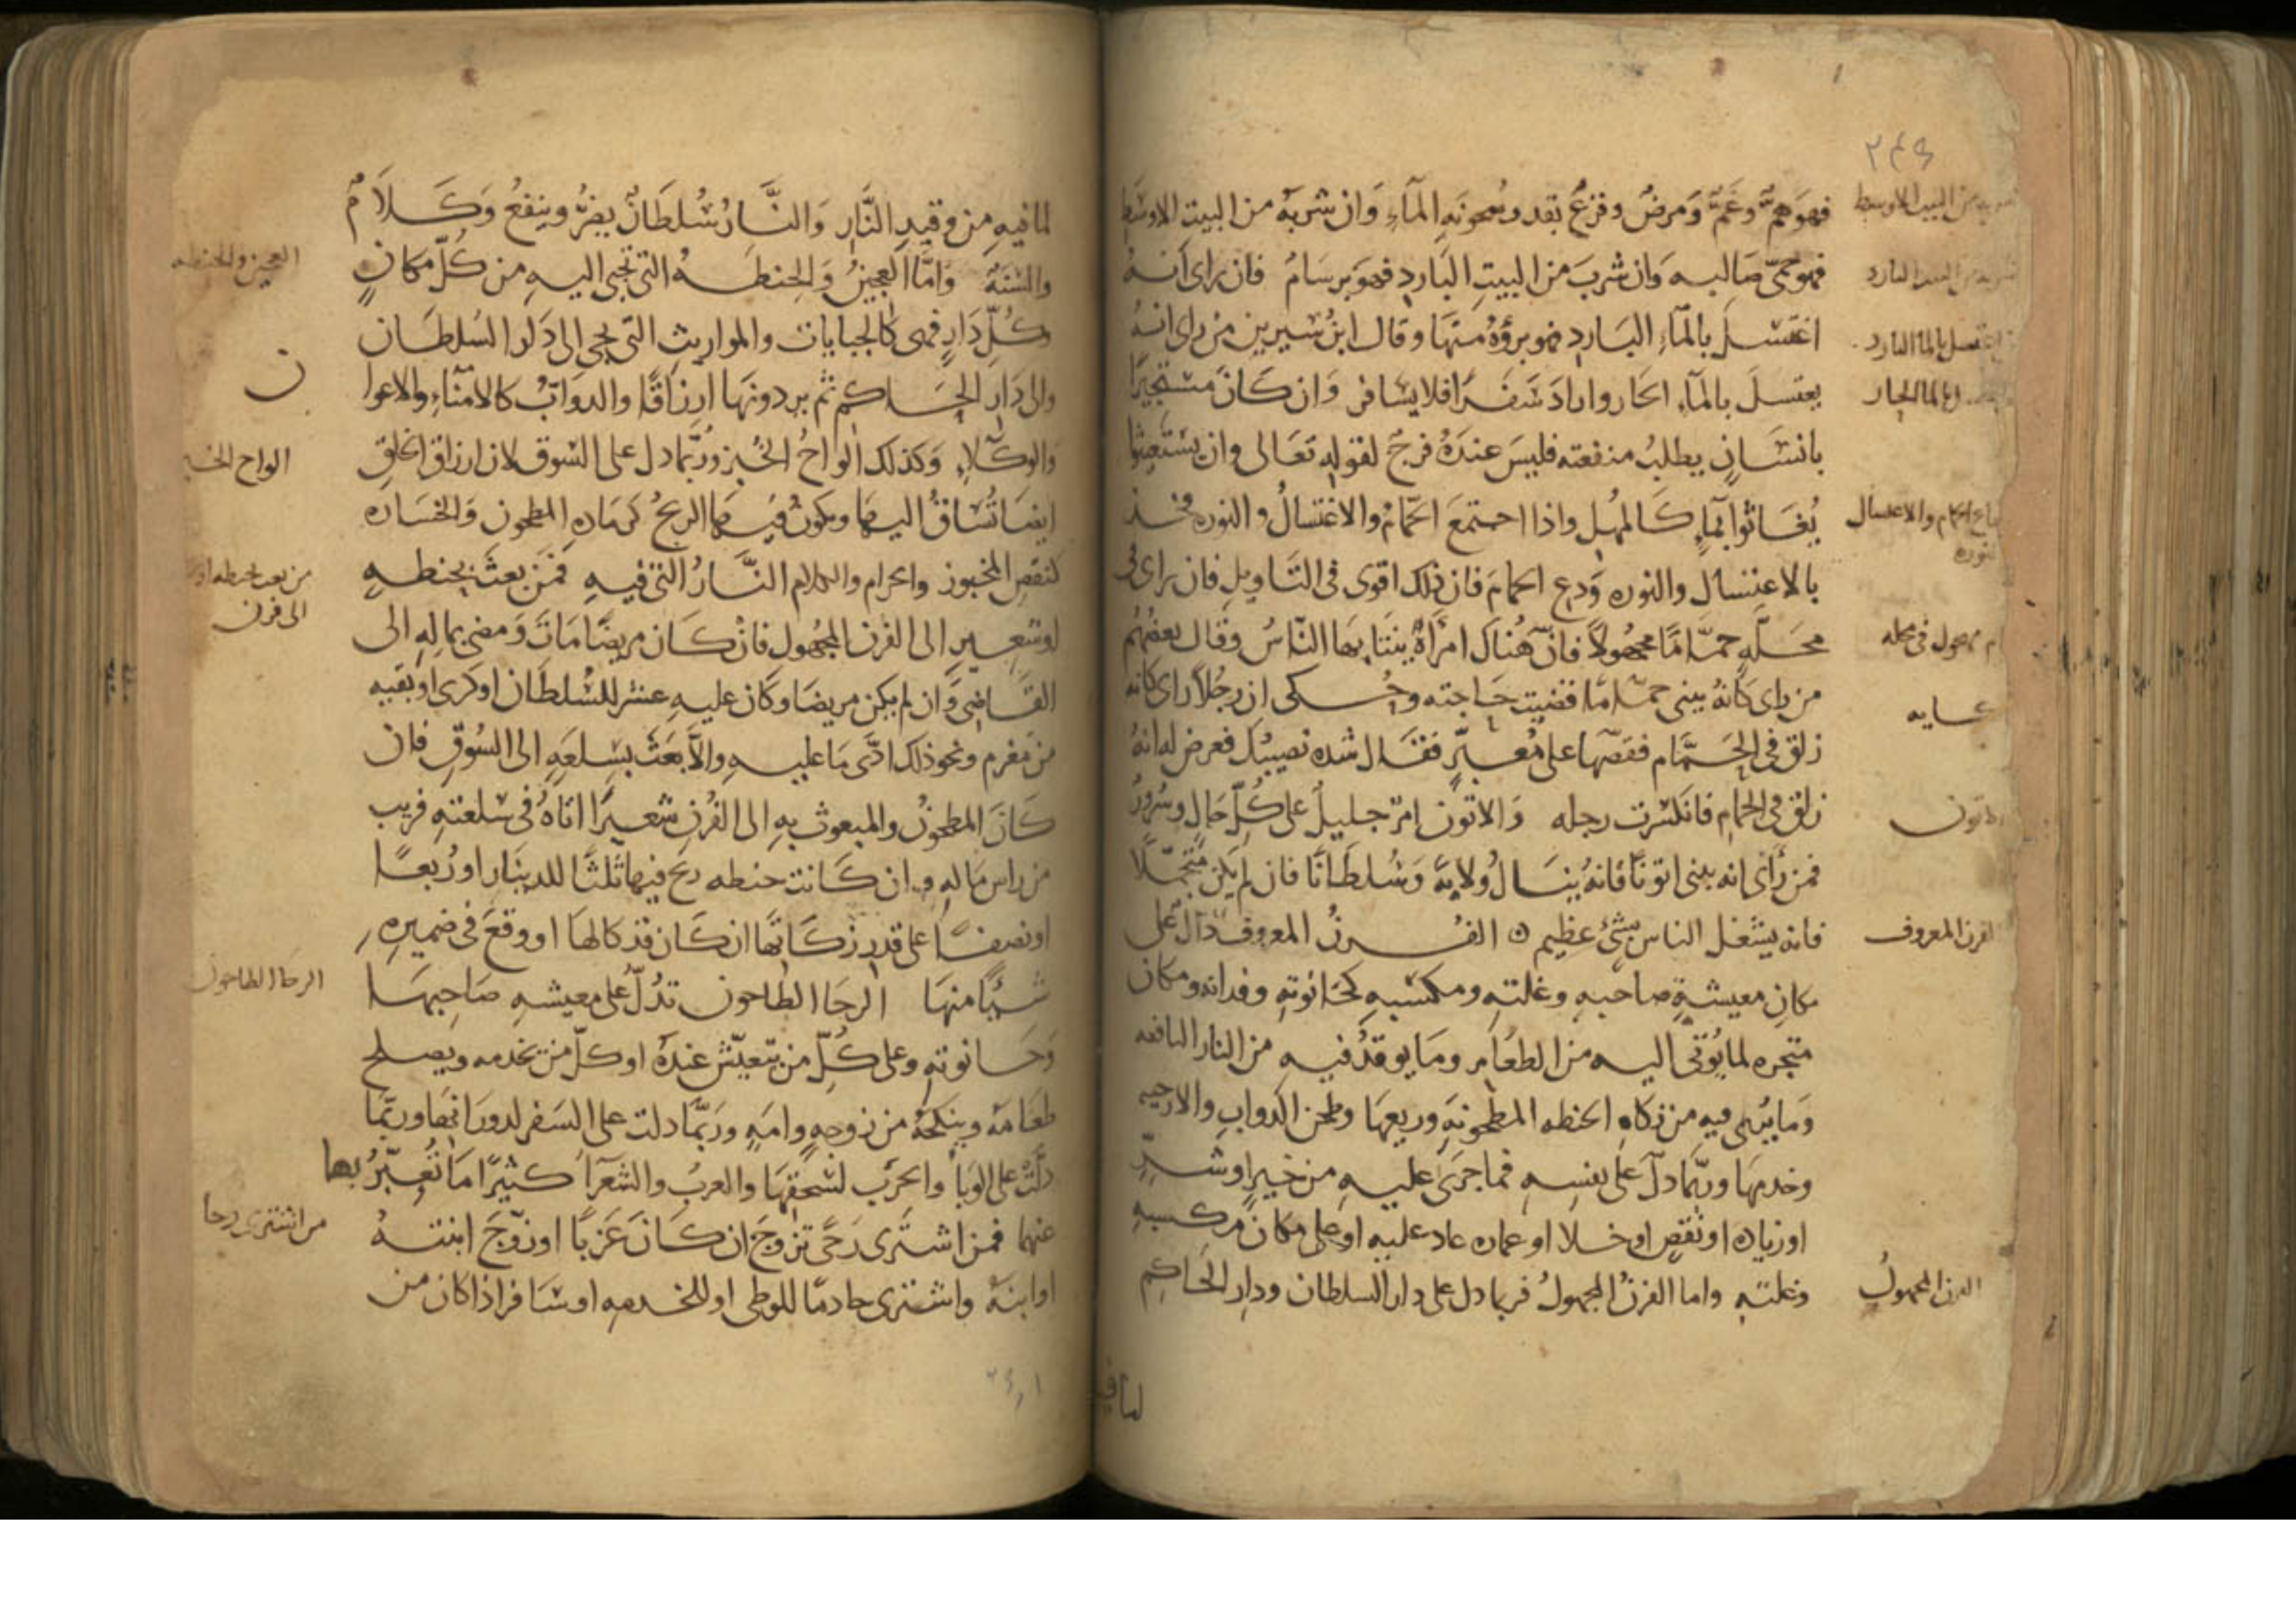 ٢٤٩
فهو همٌّ وغمٌّ ومرضٌ وفزعٌ بقدر سخونة المآء وان شربه من البيت الاوسط
فهو حمّى صالبه وان شرب من البيت البارد فهو برسام فان راى انه
اغتسل بالمآء البارد فهو برؤه منها وقال ابن سيرين من راى انه
يغتسل بالمآء الحار واراد سفرًا فلا يسافر وان كان مستجيرًا
بانسان يطلب منفعته فليس عنده فرج لقوله تعالى وان يستغيثوا
يُغاثوا بمآءٍ كالمهل واذا اجتمع الحمّام والاغتسال والنوره فخذ
بالاغتسال والنوره ودع الحمام فان ذلك اقوى فى التاويل فان راى فى
محلّه حمّامًا مجهولاً فان هناك امرأة ينتابها الناس وقال بعضهم
من راى كانه بينى حمّامًا قضيت حاجته وحُكى ان رجلاً راى كانه
زلق فى الحمّام فقصّها على معبّرٍ فقال شده تصيبك فعرض له انه
زلق فى الحمام فانكسرت رجله والاتون امرٌ جليل على كلّ حال وسرور
فمن رأى انه بينى اتونًا فانه ينال ولاية وسلطانًا فان لم يكن متجمّلاً
فانه يشغل الناس بشئ عظيم الفرن المعروف دالّ على
مكان معيشة صاحبه وغلته ومكسبه كحانوته وفدانه ومكان
متجره لما يؤتى اليه من الطعام وما يوقد فيه من النار النافعه
وما يربى فيه من زكاة الحنطه المطحونة وريعها وطحن الدواب والارحيه
وخدمها وربما دلّ على نفسه فما جرى عليه من خير او شرّ
او زياده او نقص او خلا او عماره عاد عليه او على مكان مكسبه
وغلته واما الفرن المجهول فربما دل على دار السلطان ودار الحاكم
شربه من البيت الاوسط
شربه من البيت البارد
اغتسل بالماء البارد
بالماء الحار
الحمام والاغتسال
النوره
مجهول فى محله
حكايه
الاتون
الفرن المعروف
الفرن المجهول
لما فيه
لما فيه من وقيد النّار والنّار سُلطانٌ يضرُّ وينفعُ وكلامٌ
والسنةٌ وامّا العجين والحنطة التى تجى اليه من كلّ مكانٍ
وكلّ دارٍ فهى كالجبايات والمواريث التى تجى الى دار السلطان
والى دار الحاكم ثم يردونها ارزاقًا والدوابّ كالامنآء والاعوا
والوكلاء وكذلك الواح الخبز وربّما دل على السوق لان ارزاق الخلق
ايضا تُساق اليها ويكون فيها الربح كرماده المطحون والخساره
كنقص المخبوز والحرام والكلام النّار التى فيه فمن بعث بحنطه
او شعير الى الفرن المجهول فان كان مريضًا مات ومضى بماله الى
القاضى وان لم يكن مريضا وكان عليه عشر للسُلطان او كرى او بقيه
من مغرم ونحو ذلك ادّى ما عليه والا بعث بسلعه الى السوق فان
كان المطحون والمبعوث به الى الفرن شعيرًا اتاه فى سلعته قريب
من راس ماله وان كانت حنطه ربح فيها ثلثًا للدينار او ربعًا
او نصفًا على قدر زكاتها ان كان قد كالها او وقع فى ضميره
شيئًا منها الرحا الطاحون تدُلّ على معيشه صاحبها
وحانوته وعلى كلّ من يتعيّش عنده او كلّ من يخدمه ويصلح
طعامه وينكحه من زوجه وامه وربّما دلت على السفر لدورانها وربّما
دلّت على الوبأ والحرب لسحقها والعرب والشعرآ كثيرًا ما تُعبّر بها
عنهما فمن اشترى رحًى تزوج ان كان عزبًا او زوّج ابنته
او ابنه واشترى خادمًا للوطى او للخدمه او سافر اذا كان من
العجين والحنطه
ن
الواح الخبز
من بعث بحنطه او
الى فرن
الرحا الطاحون
من اشترى رحا